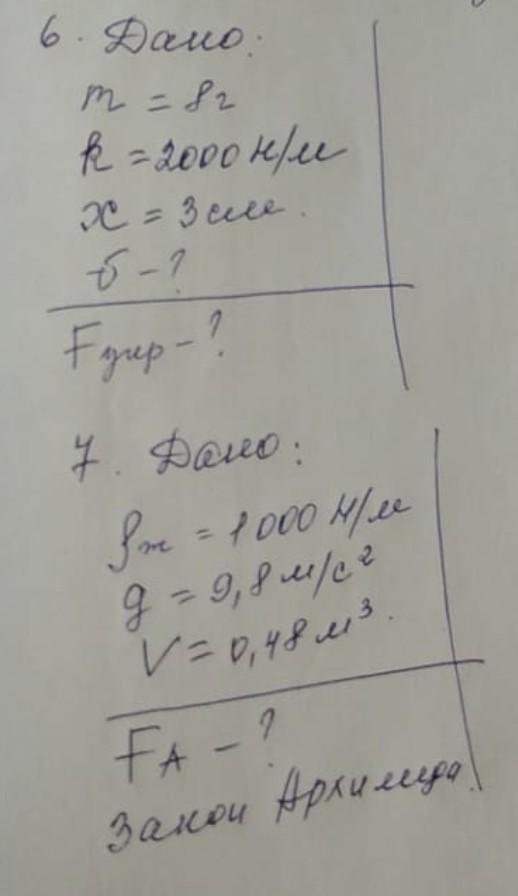 6. Дано:
m = 8г
k = 2000 н/м
x = 3 см.
б - ?
Fупр - ?
7. Дано:
ρж = 1000 н/м
g = 9,8 м/с²
V = 0,48 м³.
FA - ?
Закон Архимеда